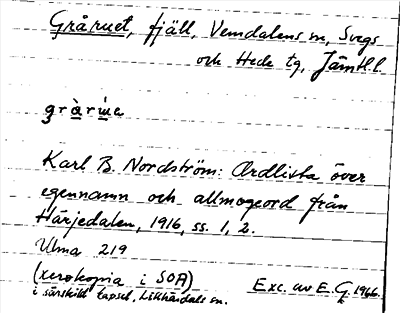 Gråruet, fjäll, Vemdalens sn, Svegs
och Hede tg, Jämtl. l.
gràrẁe
Karl B. Nordström: Ordlista över
egennamn och allmogeord från
Härjedalen, 1916, ss. 1, 2.
Ulma 219
(xerokopia i SOA)
i särskild kapsel, Lillhärdals sn.
Exc. av E. G. 1966.